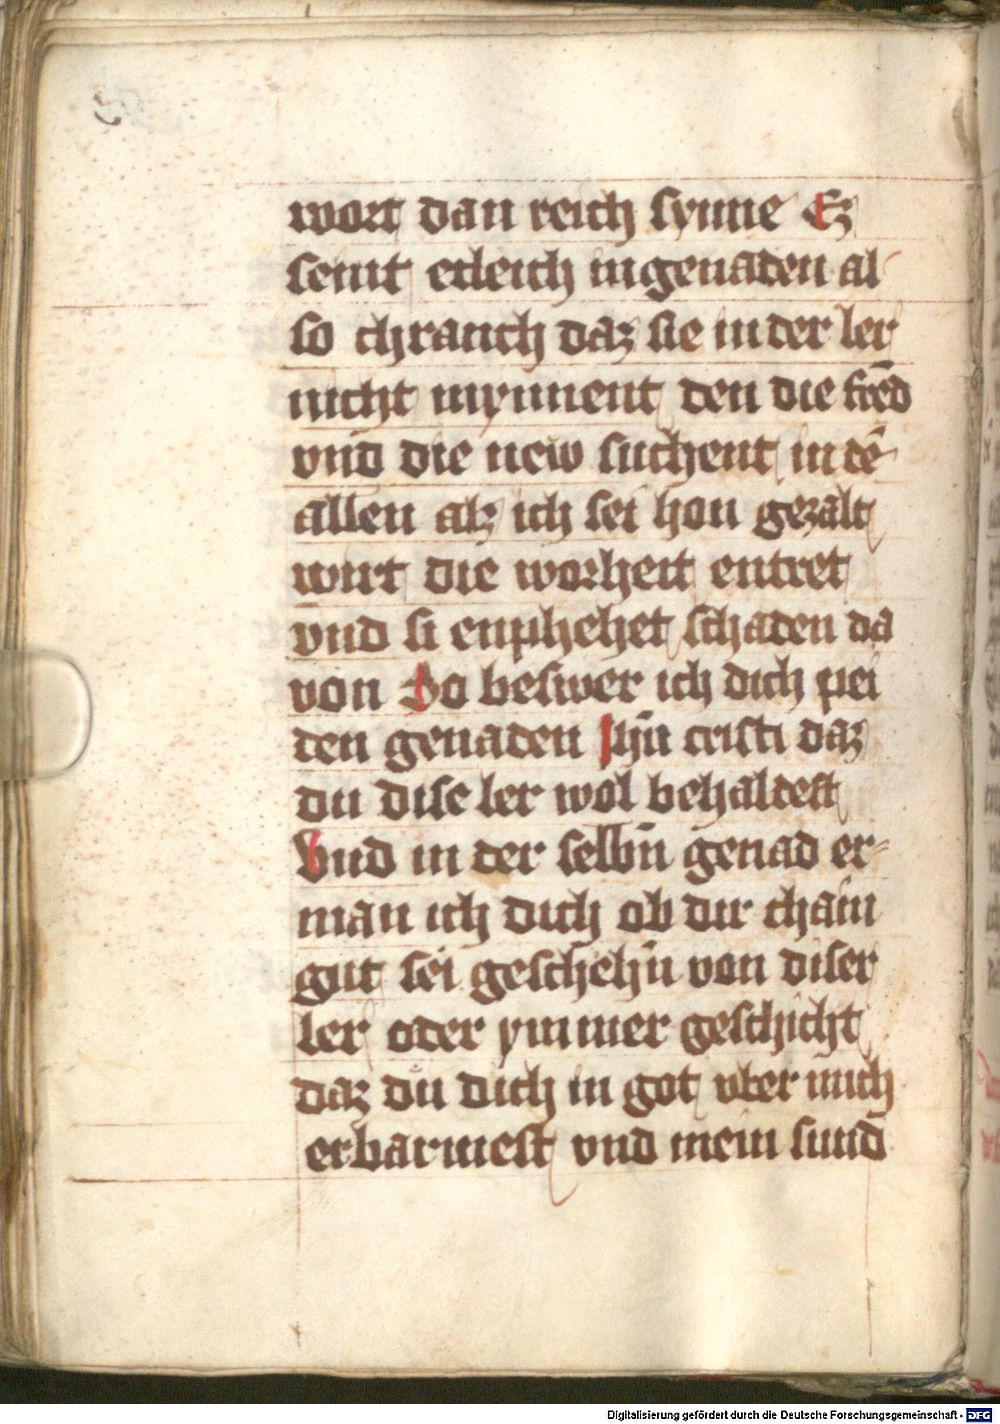 wort dan reich synne Ez
seint etleich in genaden al
so chranch daz sie in der ler
nicht mynnent den die fręd
vnd die new suchent in dē
allen alz ich sei hon gezalt
wirt die worheit entret
vnd si enphehet schaden da
von So beswer ich dich pei
den genaden Jhū cristi daz
du dise ler wol behaldest
Vnd in der selbn̄ genad er-
man ich dich ob dir chain
gut sei geschehn̄ von diser
ler oder ymmer geschicht
daz dü dich in got vber mich
erbarmest vnd mein sund̄
Digitalisierung gefördert durch die Deutsche Forschungsgemeinschaft - DFG